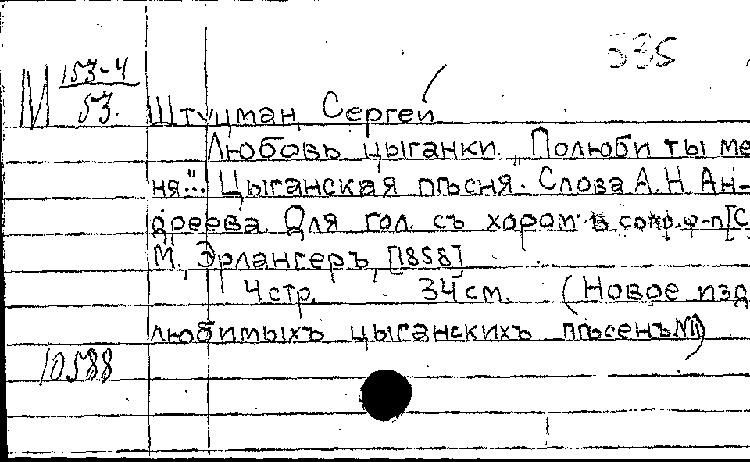 535
М 153-4
53.
Штуцман Сергей
Любовь цыганки. "Полюби ты ме
ня"... Цыганская пѣсня. Слова А.Н. Ан-
дреева. Для гол. съ хором в сопр. ф-п [С
М., Эрлангеръ, [1858]
4 стр. 34 см. (Новое изд
любимыхъ цыганскихъ пѣсенъ №1)
10588